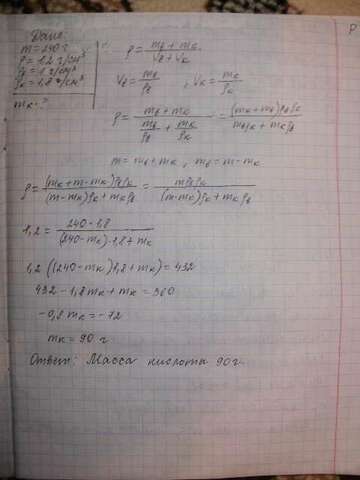 Дано:
m = 240 г
ρ = 1,2 г/см³
ρв = 1 г/см³
ρк = 1,8 г/см³
mк - ?
ρ = (mв + mк)/(Vв + Vк)
Vв = mв/ρв , Vк = mк/ρк
ρ = (mв + mк)/(mв/ρв + mк/ρк) = (mк + mв)ρвρк/(mвρк + mкρв)
m = mв + mк , mв = m - mк
ρ = (mк + m - mк)ρвρк/((m - mк)ρк + mкρв) = mρвρк/((m - mк)ρк + mкρв)
1,2 = 240 · 1,8/((240 - mк) · 1,8 + mк)
1,2((240 - mк)1,8 + mк) = 432
432 - 1,8mк + mк = 360
-0,8mк = -72
mк = 90 г
Ответ: Масса кислота 90 г.
Р